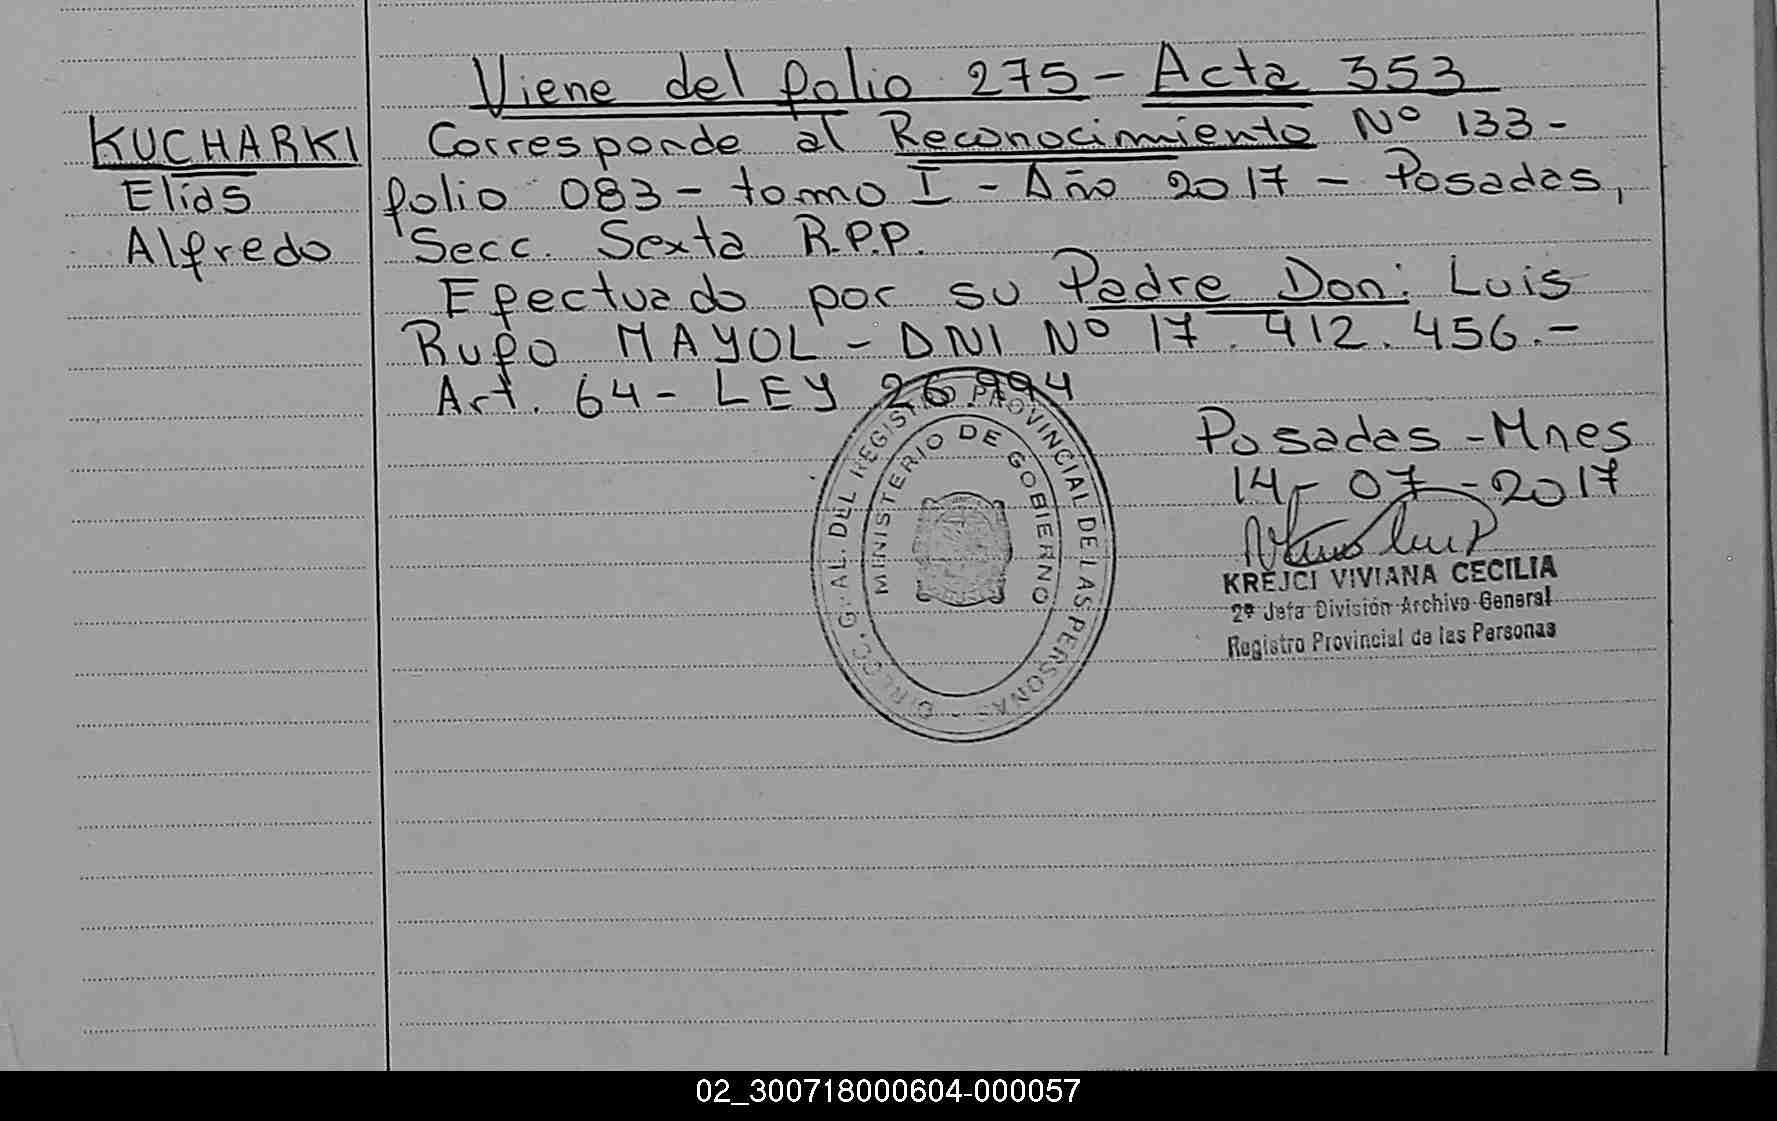 Viene del folio 275 - Acta 353
KUCHARKI
Elías
Alfredo
Corresponde al Reconocimiento Nº 133 -
folio 083 - tomo I - Año 2017 - Posadas,
Secc. Sexta R.P.P.
Efectuado por su Padre Don: Luis
Rufo MAYOL - DNI Nº 17.412.456.-
Art. 64 - LEY 26.994
Posadas - Mnes
14 - 07 - 2017
KREJCI VIVIANA CECILIA
2ª Jefa División Archivo General
Registro Provincial de las Personas
DIRECC. GRAL. DEL REGISTRO PROVINCIAL DE LAS PERSONAS
MINISTERIO DE GOBIERNO
02_300718000604-000057